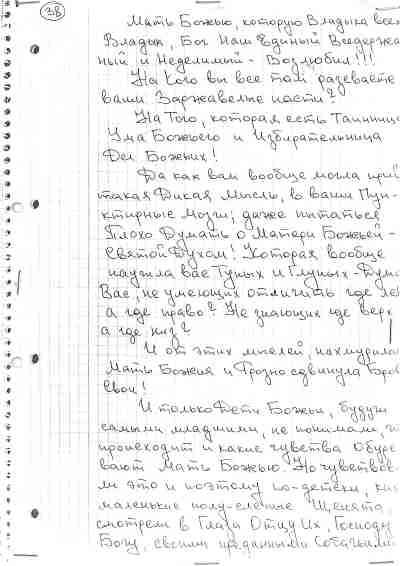 38
Мать Божью, которую Владыка всех
Владык, Бог Наш Единый Вседержа
ный и Неделимый - Возлюбил!!!
На Кого вы все там разеваете
ваши Заржавелые пасти?
На Того, которая есть Таинница
Ума Божьего и Избирательница
Дел Божьих!
Да как вам вообще могла прий
такая Дикая Мысль, в ваши Пун-
ктирные Мозги, даже пытаться
Плохо Думать о Матери Божьей -
Святой Духом! Которая вообще
научила вас Тупых и Глупых - Дума
Вас, не умеющих отличить где ле
а где право? Не знающих где верх
а где низ?
И от этих мыслей, нахмурила
Мать Божия и Грозно сдвинула Бров
свои!
И только Дети Божьи, будучи
самыми младшими, не понимали, чт
происходит и какие чувства обуре
вают Мать Божью. Но чувствова
ли это и поэтому по-детски, как
маленькие полу-слепые Щенята,
смотрели в Глаза Отцу Их, Господу
Богу, своими преданными Собачьими